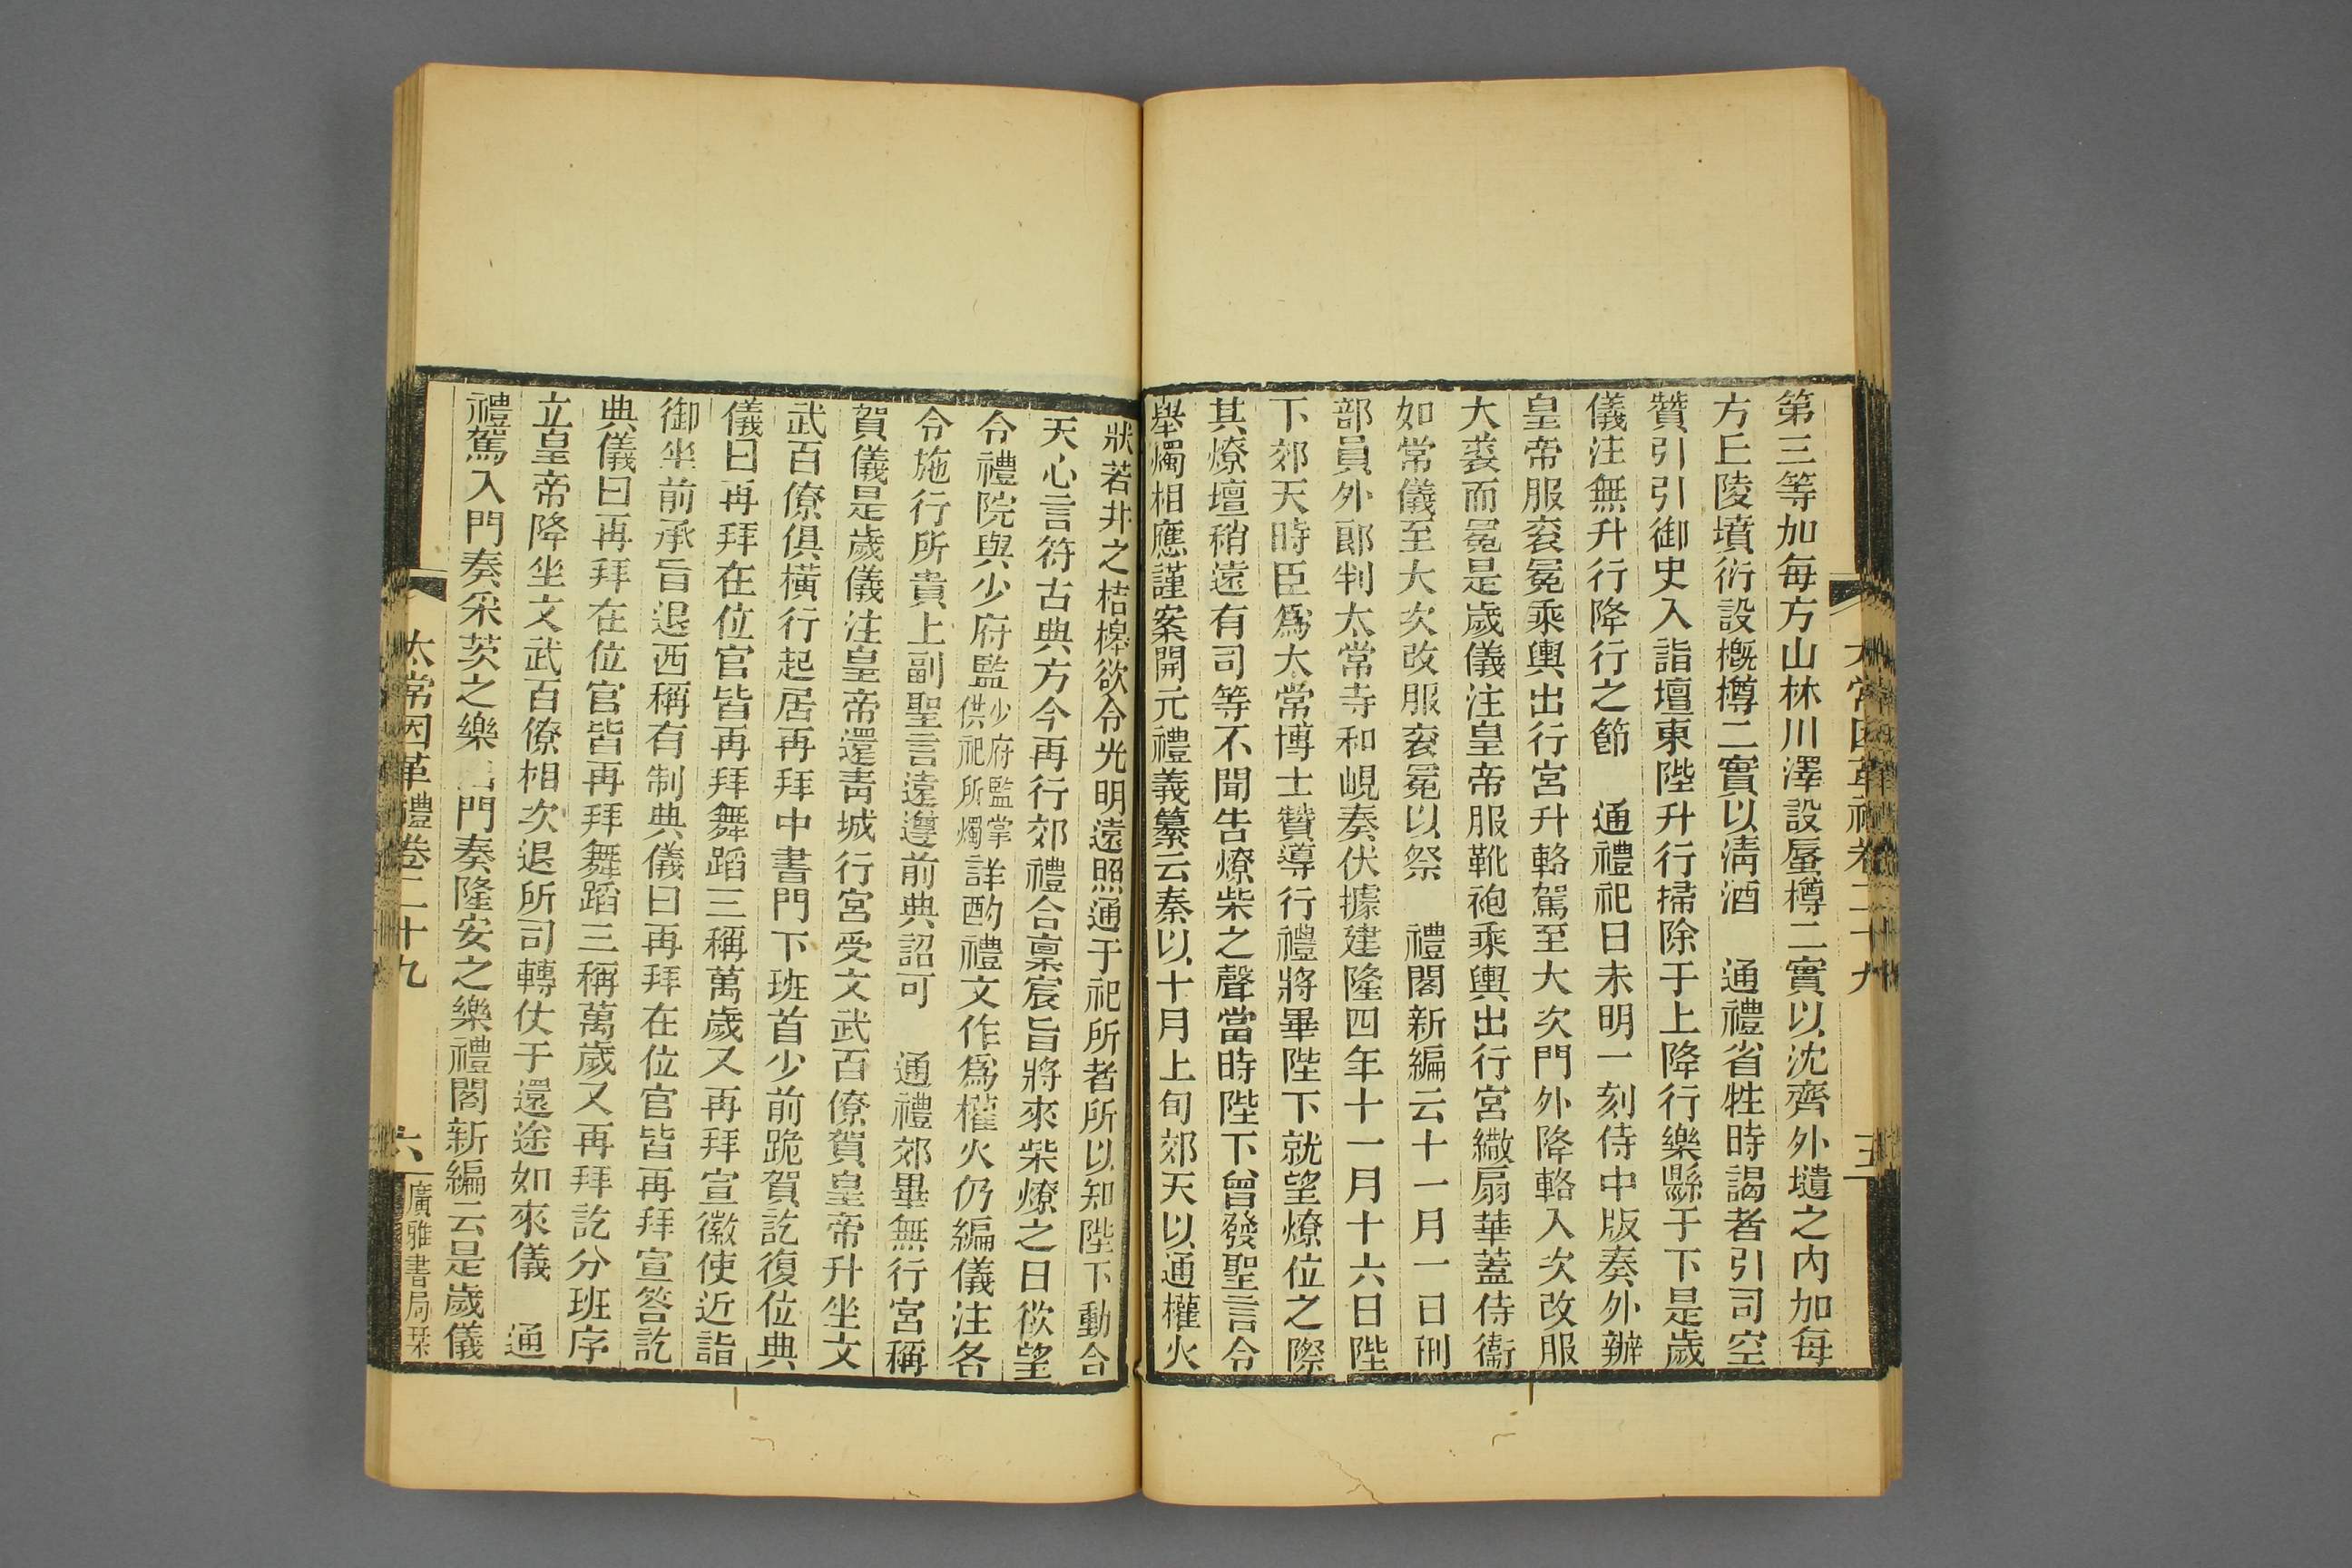 第三等加每方山林川澤設蜃樽二實以沈齊外壝之內加每
方丘陵墳衍設概樽二實以清酒　通禮省牲時謁者引司空
贊引引御史入詣壇東陛升行掃除于上降行樂縣于下是歲
儀注無升行降行之節　通禮祀日未明一刻侍中版奏外辦
皇帝服袞冕乘輿出行宮升輅駕至大次門外降輅入次改服
大裘而冕是歲儀注皇帝服靴袍乘輿出行宮繖扇華蓋侍衞
如常儀至大次改服袞冕以祭　禮閣新編云十一月一日刑
部員外郎判太常寺和峴奏伏據建隆四年十一月十六日陛
下郊天時臣為太常博士贊導行禮將畢陛下就望燎位之際
其燎壇稍遠有司等不聞告燎柴之聲當時陛下曾發聖言令
舉燭相應謹案開元禮義纂云秦以十月上旬郊天以通權火
狀若井之桔槔欲令光明遠照通于祀所者所以知陛下動合
天心言符古典方今再行郊禮合稟宸旨將來柴燎之日欲望
令禮院與少府監少府監掌供祀所燭詳酌禮文作為權火仍編儀注各
令施行所貴上副聖言遠遵前典詔可　通禮郊畢無行宮稱
賀儀是歲儀注皇帝還青城行宮受文武百僚賀皇帝升坐文
武百僚俱橫行起居再拜中書門下班首少前跪賀訖復位典
儀曰再拜在位官皆再拜舞蹈三稱萬歲又再拜宣徽使近詣
御坐前承旨退西稱有制典儀曰再拜在位官皆再拜宣答訖
典儀曰再拜在位官皆再拜舞蹈三稱萬歲又再拜訖分班序
立皇帝降坐文武百僚相次退所司轉仗于還途如來儀　通
禮駕入門奏采茨之樂門奏隆安之樂禮閣新編云是歲儀
太常因革禮卷二十九
六
廣雅書局栞